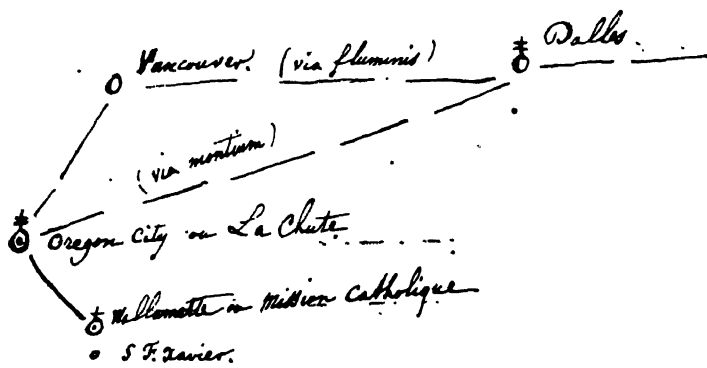 Dalles.
Vancouver. (via fluminis)
(via montium)
Oregon City ou La Chute
Willamette ou Mission Catholique
S F. Xavier.